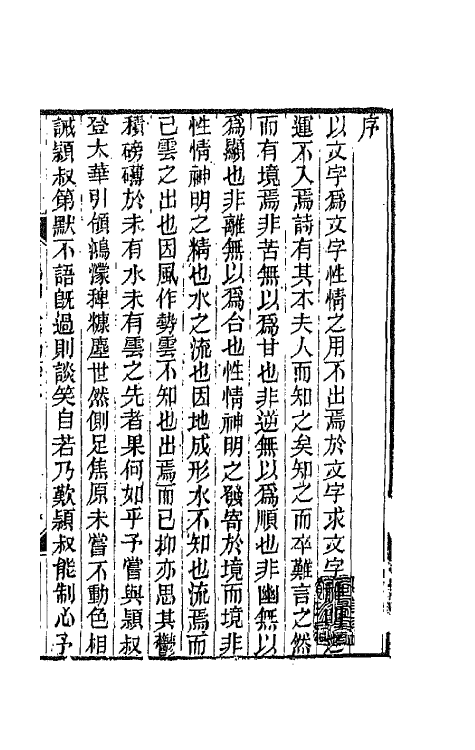 序
以文字爲文字性情之用不出焉於文字求文字
運不入焉詩有其本夫人而知之矣知之而卒難言之然
而有境焉非苦無以爲甘也非逆無以爲順也非幽無以
爲顯也非離無以爲合也性情神明之發寄於境而境非
性情神明之精也水之流也因地成形水不知也流焉而
已雲之出也因風作勢雲不知也出焉而已抑亦思其鬱
積磅礴於未有水未有雲之先者果何如乎予嘗與穎叔
登太華引領鴻濛稗糠塵世然側足焦原未嘗不動色相
誡穎叔第默不語旣過則談笑自若乃歎穎叔能制心予